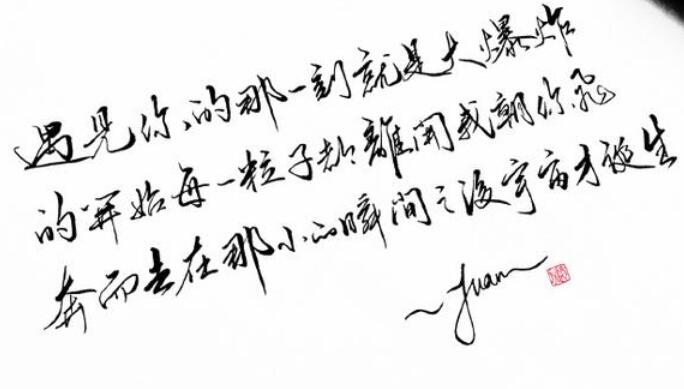 遇見你的那一刻就是大爆炸
的開始每一粒子都離開我朝你飛
奔而去在那小的瞬間之後宇宙才誕生
~Juan